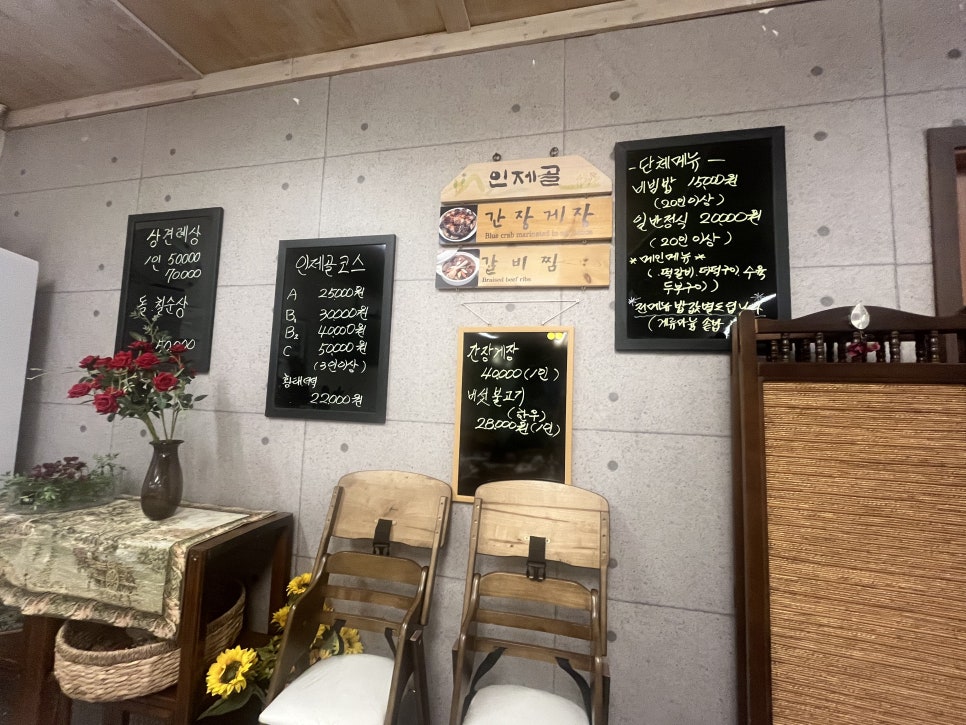 상견례상
1인 50000
70000
돌 칠순상
50000
인제골코스
A 25000원
B₁ 30000원
B₂ 40000원
C 50000원
(3인이상)
황태정식
22000원
인제골
간장게장
Blue crab marinated in
갈비찜
Braised beef ribs
간장게장
40,000(1인)
버섯불고기
(한우)
28,000원(1인)
-단체메뉴-
비빔밥 15000원
(20인이상)
일반정식 20000원
(20인이상)
*메인메뉴*
(떡갈비, 더덕구이, 수육
두부구이)
전메뉴 밥값별도